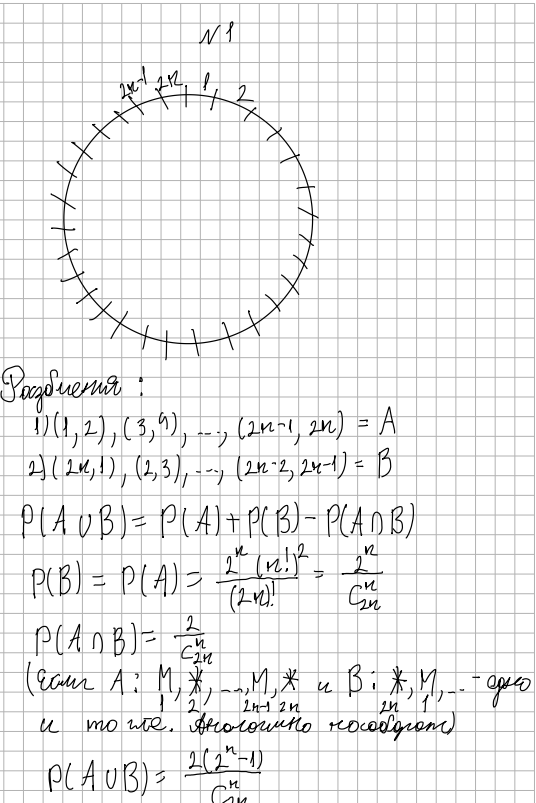 N1
2n-1 2n 1 2
Разбиения:
1) (1, 2), (3, 4), ..., (2n-1, 2n) = A
2) (2n, 1), (2, 3), ..., (2n-2, 2n-1) = B
P(A ∪ B) = P(A) + P(B) - P(A ∩ B)
P(B) = P(A) = 2^n (n!)^2 / (2n)! = 2^n / C_{2n}^n
P(A ∩ B) = 2 / C_{2n}^n
(Если A: M, *, ..., M, * и B: *, M, ... - одно
1 2 2n-1 2n 2n 1
и то же. Аналогично наоборот)
P(A ∪ B) = 2(2^n - 1) / C_{2n}^n